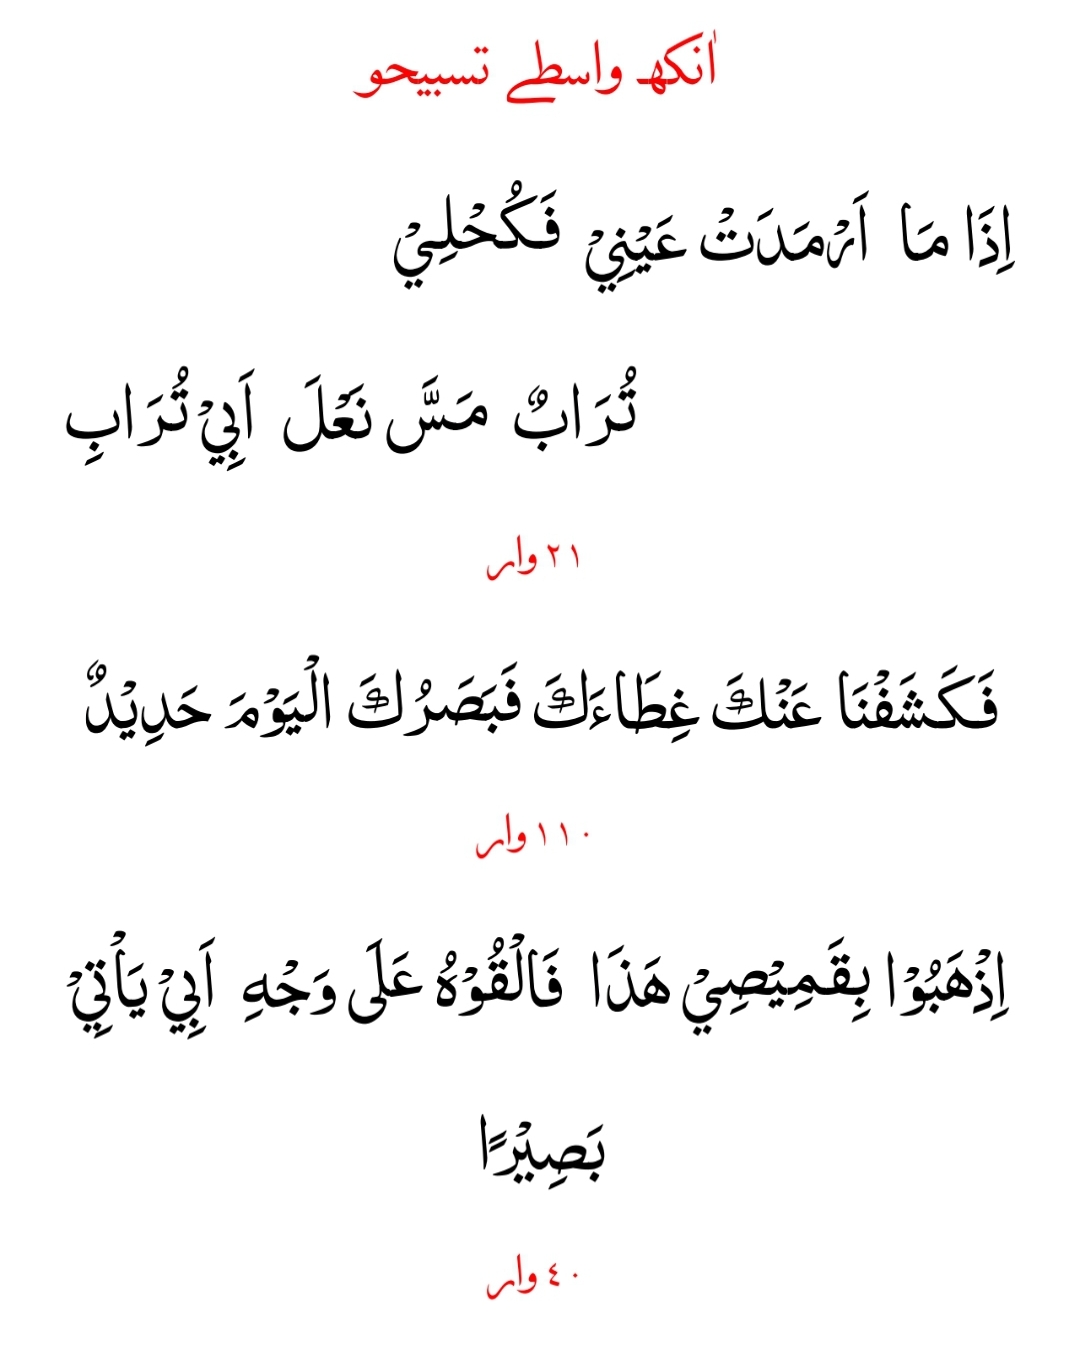 اٰنکھ واسطے تسبیحو
اِذَا مَا اَرْمَدَتْ عَيْنِيْ فَكُحْلِيْ
تُرَابٌ مَسَّ نَعْلَ اَبِيْ تُرَابِ
٢١ وار
فَكَشَفْنَا عَنْكَ غِطَاءَكَ فَبَصَرُكَ الْيَوْمَ حَدِيْدٌ
١١٠ وار
اِذْهَبُوْا بِقَمِيْصِيْ هَذَا فَالْقُوْهُ عَلَى وَجْهِ اَبِيْ يَأْتِيْ
بَصِيْرًا
٤٠ وار